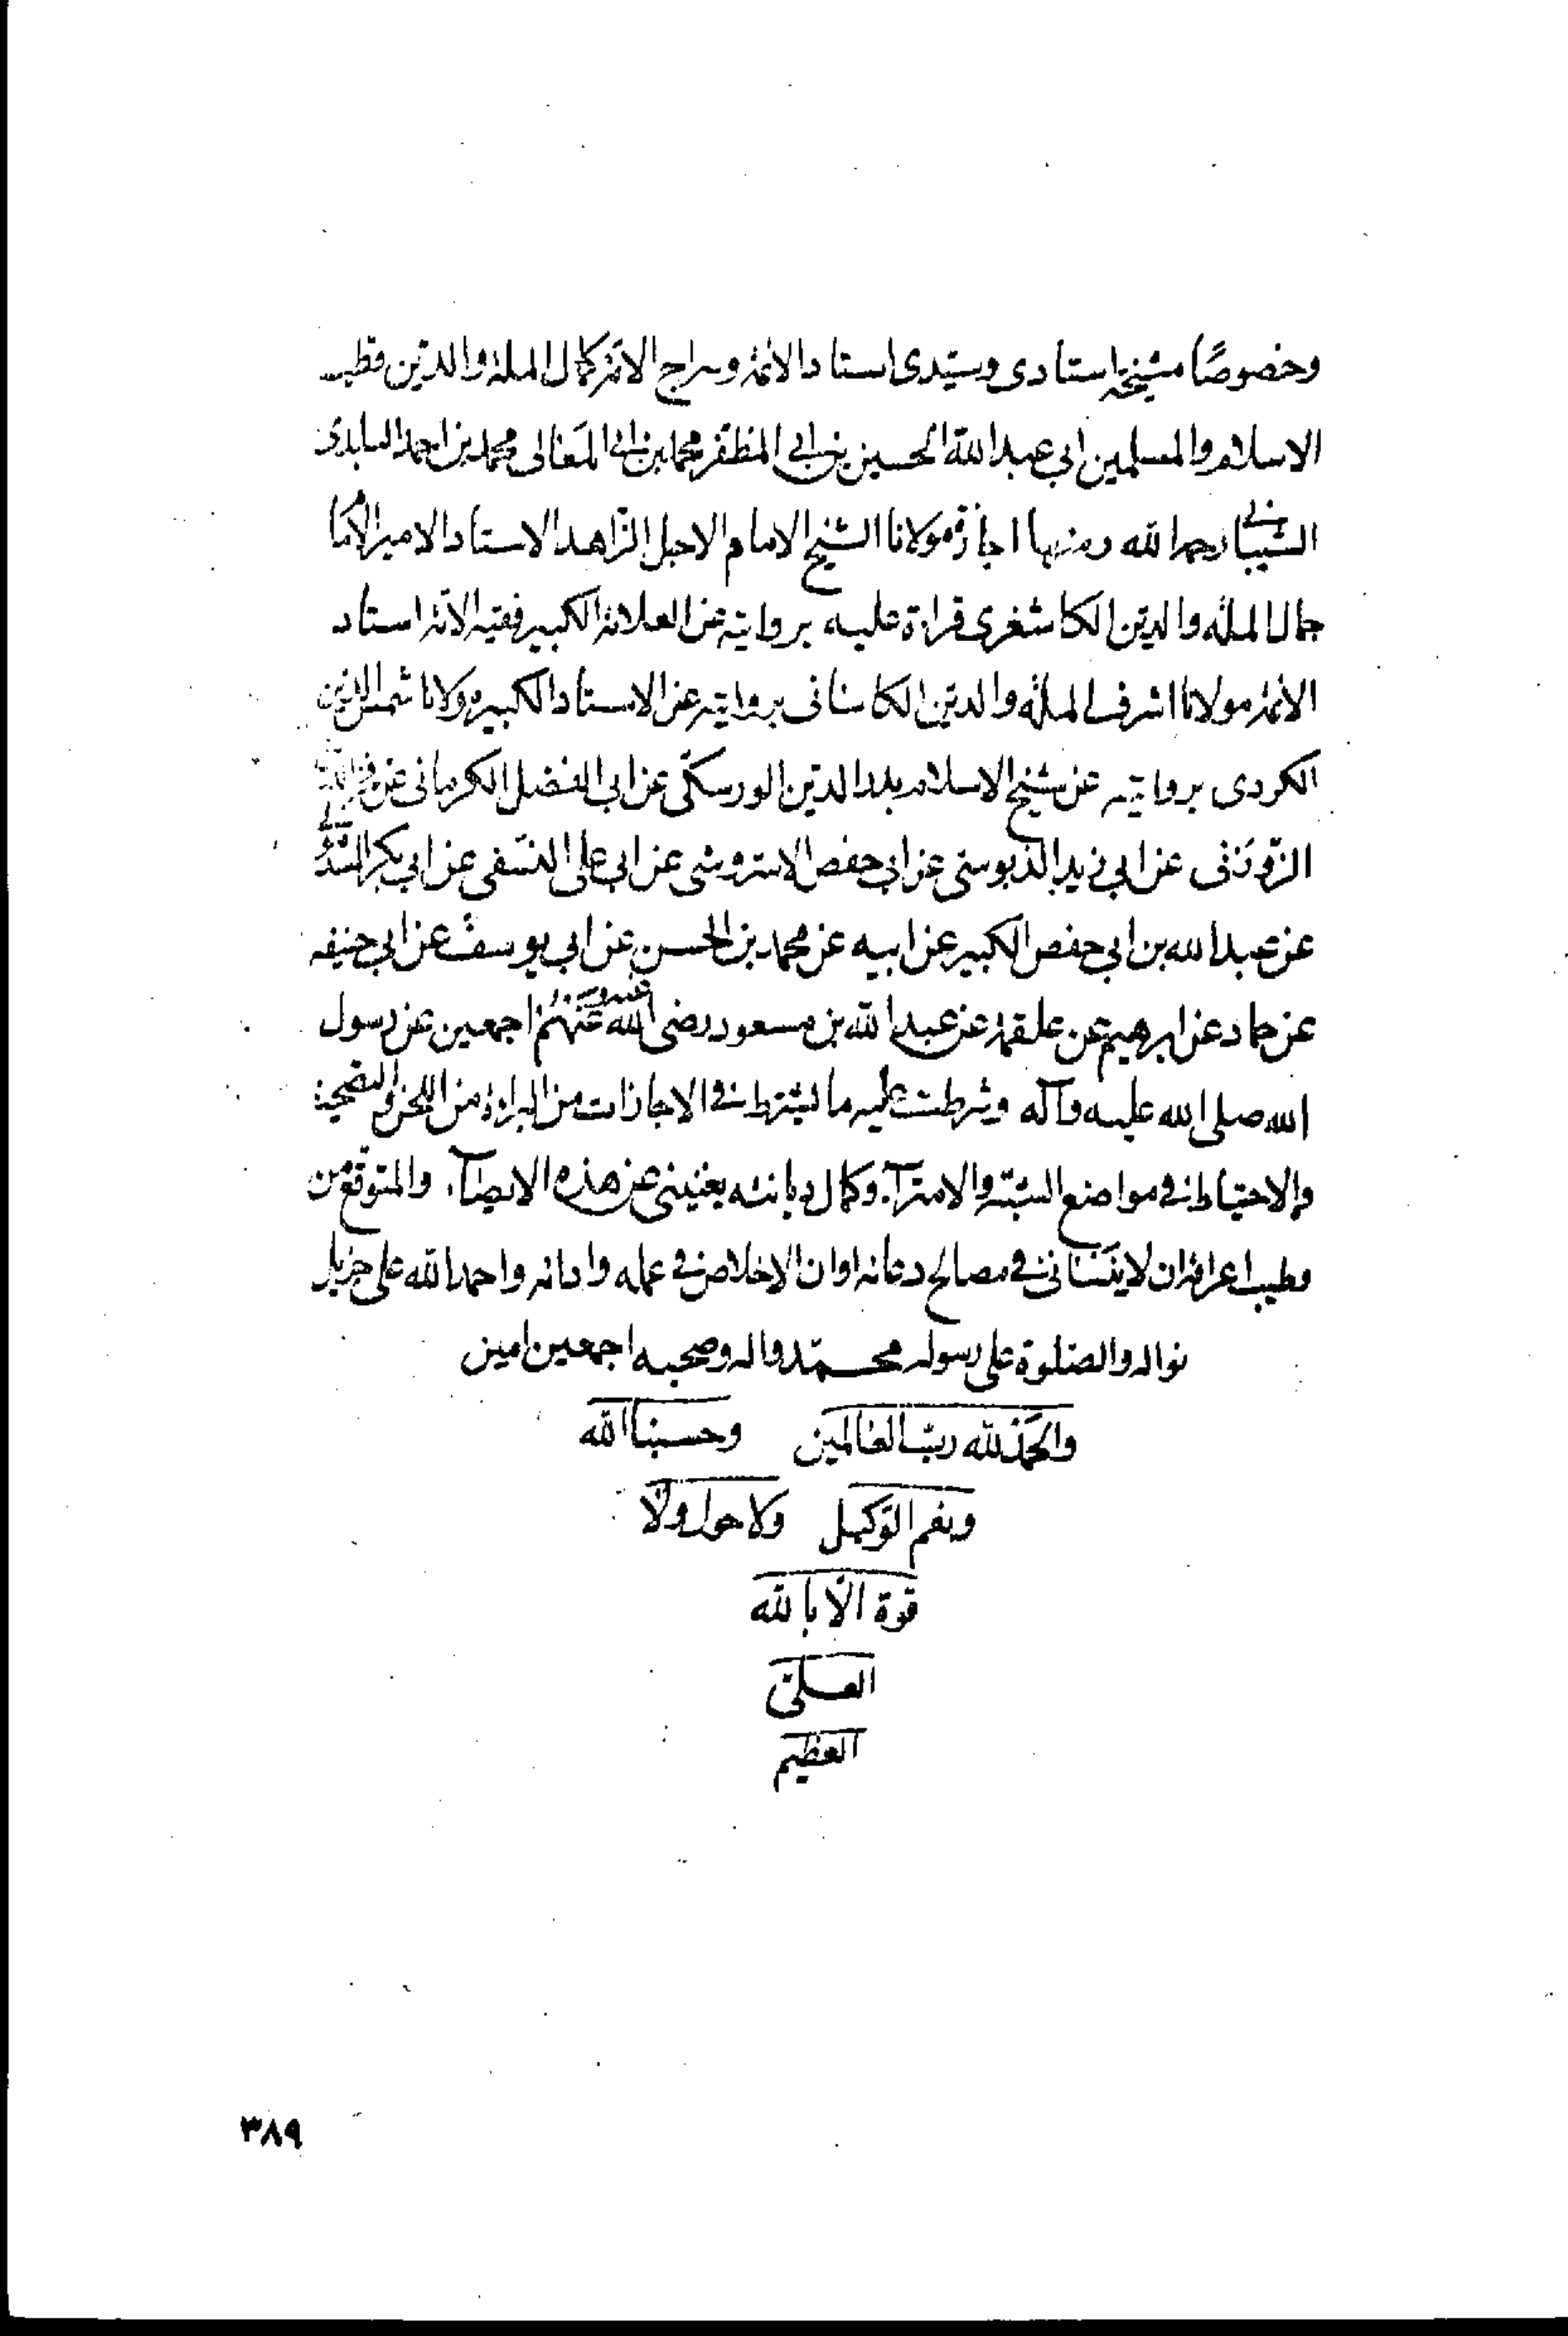 وخصوصًا مشيخة استادى وسيّدى استاد الائمة وسراج الامّة كمال الملة والدّين قطب
الاسلام والمسلمين ابى عبد الله الحسين بن ابى المظفّر محمد بن ابى المَعالى محمد بن احمد
الشيبانى رحمه الله ومنها اجازة مولانا الشيخ الامام الاجل الزّاهد الاستاد الامير الامام
جمال الملّه والدين الكاشغرى قراءة عليه بروايته عن العلامة الكبير فقيه الامّة استاد
الائمة مولانا اشرف الملّه والدين الكاسانى بروايته عن الاستاد الكبير مولانا شمس الدين
الكردى بروايته عن شيخ الاسلام بدر الدين الورسكى عن ابى الفضل الكرمانى عن
الزّوزنى عن ابى زيد الدّبوسى عن ابى حفص الاستروشى عن ابى على النسَفى عن ابى بكر
عن عبد الله بن ابى حفص الكبير عن ابيه عن محمد بن الحسن عن ابى يوسف عن ابى حنيفه
عن حماد عن ابرهيم عن علقمة عن عبد الله بن مسعود رضى الله عنهم اجمعين عن رسول
الله صلى الله عليه وآله وشرطت عليه ما يشترط فى الاجازات من البراءة من اللحن والتصحيف
والاحتياط فى مواضع الشبهة والامتراء وكمال ديانته يغنينى عن هذه الايصاء والمتوقّع من
وطيب اعراقه ان لا يَنسانى فى مصالح دعائه اوان الاخلاص فى عمله وادائه واحمد الله على جزيل
نواله والصّلوة على رسوله محمّد واله وصحبه اجمعين امين
والحَمد لله ربّ العالمين وحسبنا الله
ونعم الوَكيل ولا حول ولا
قوة الّا بالله
العلىّ
العظيم
٣٨٩